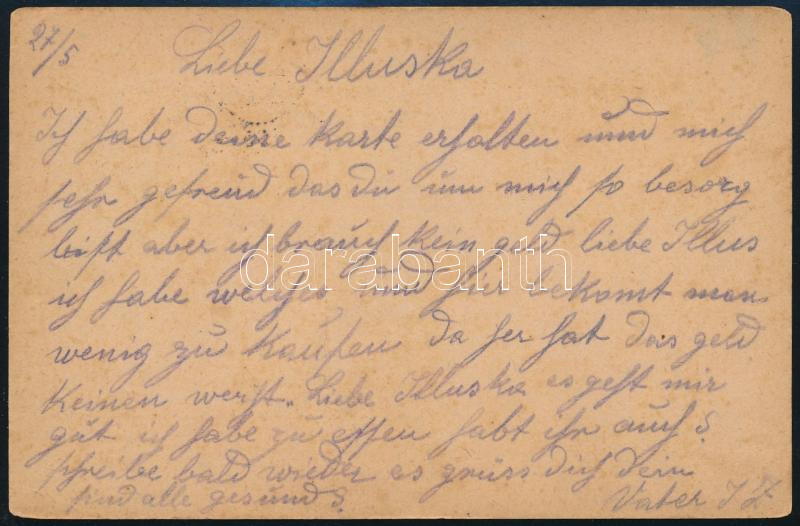 27/5
Liebe Illuska
Ich habe deine karte erhalten und mich
sehr gefreud das du um mich so besorg
bist aber ich brauch kein geld liebe Illus
ich habe welches und hir bekomt man
wenig zu kaufen da her hat das geld
keinen werst. Liebe Illuska es geht mir
gut ich habe zu essen habt ihr auch?
schreibe bald wieder es grüss dich dein
sind alle gesund? Vater I Z
darabanth